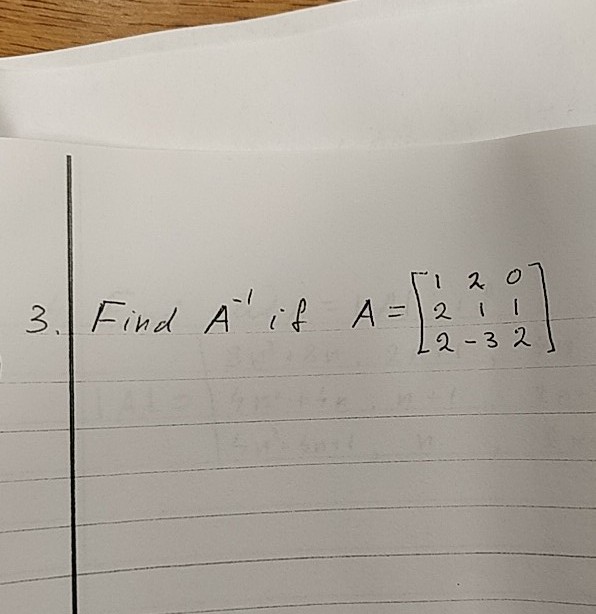 3. Find A⁻¹ if A = [1 2 0
2 1 1
2 -3 2]